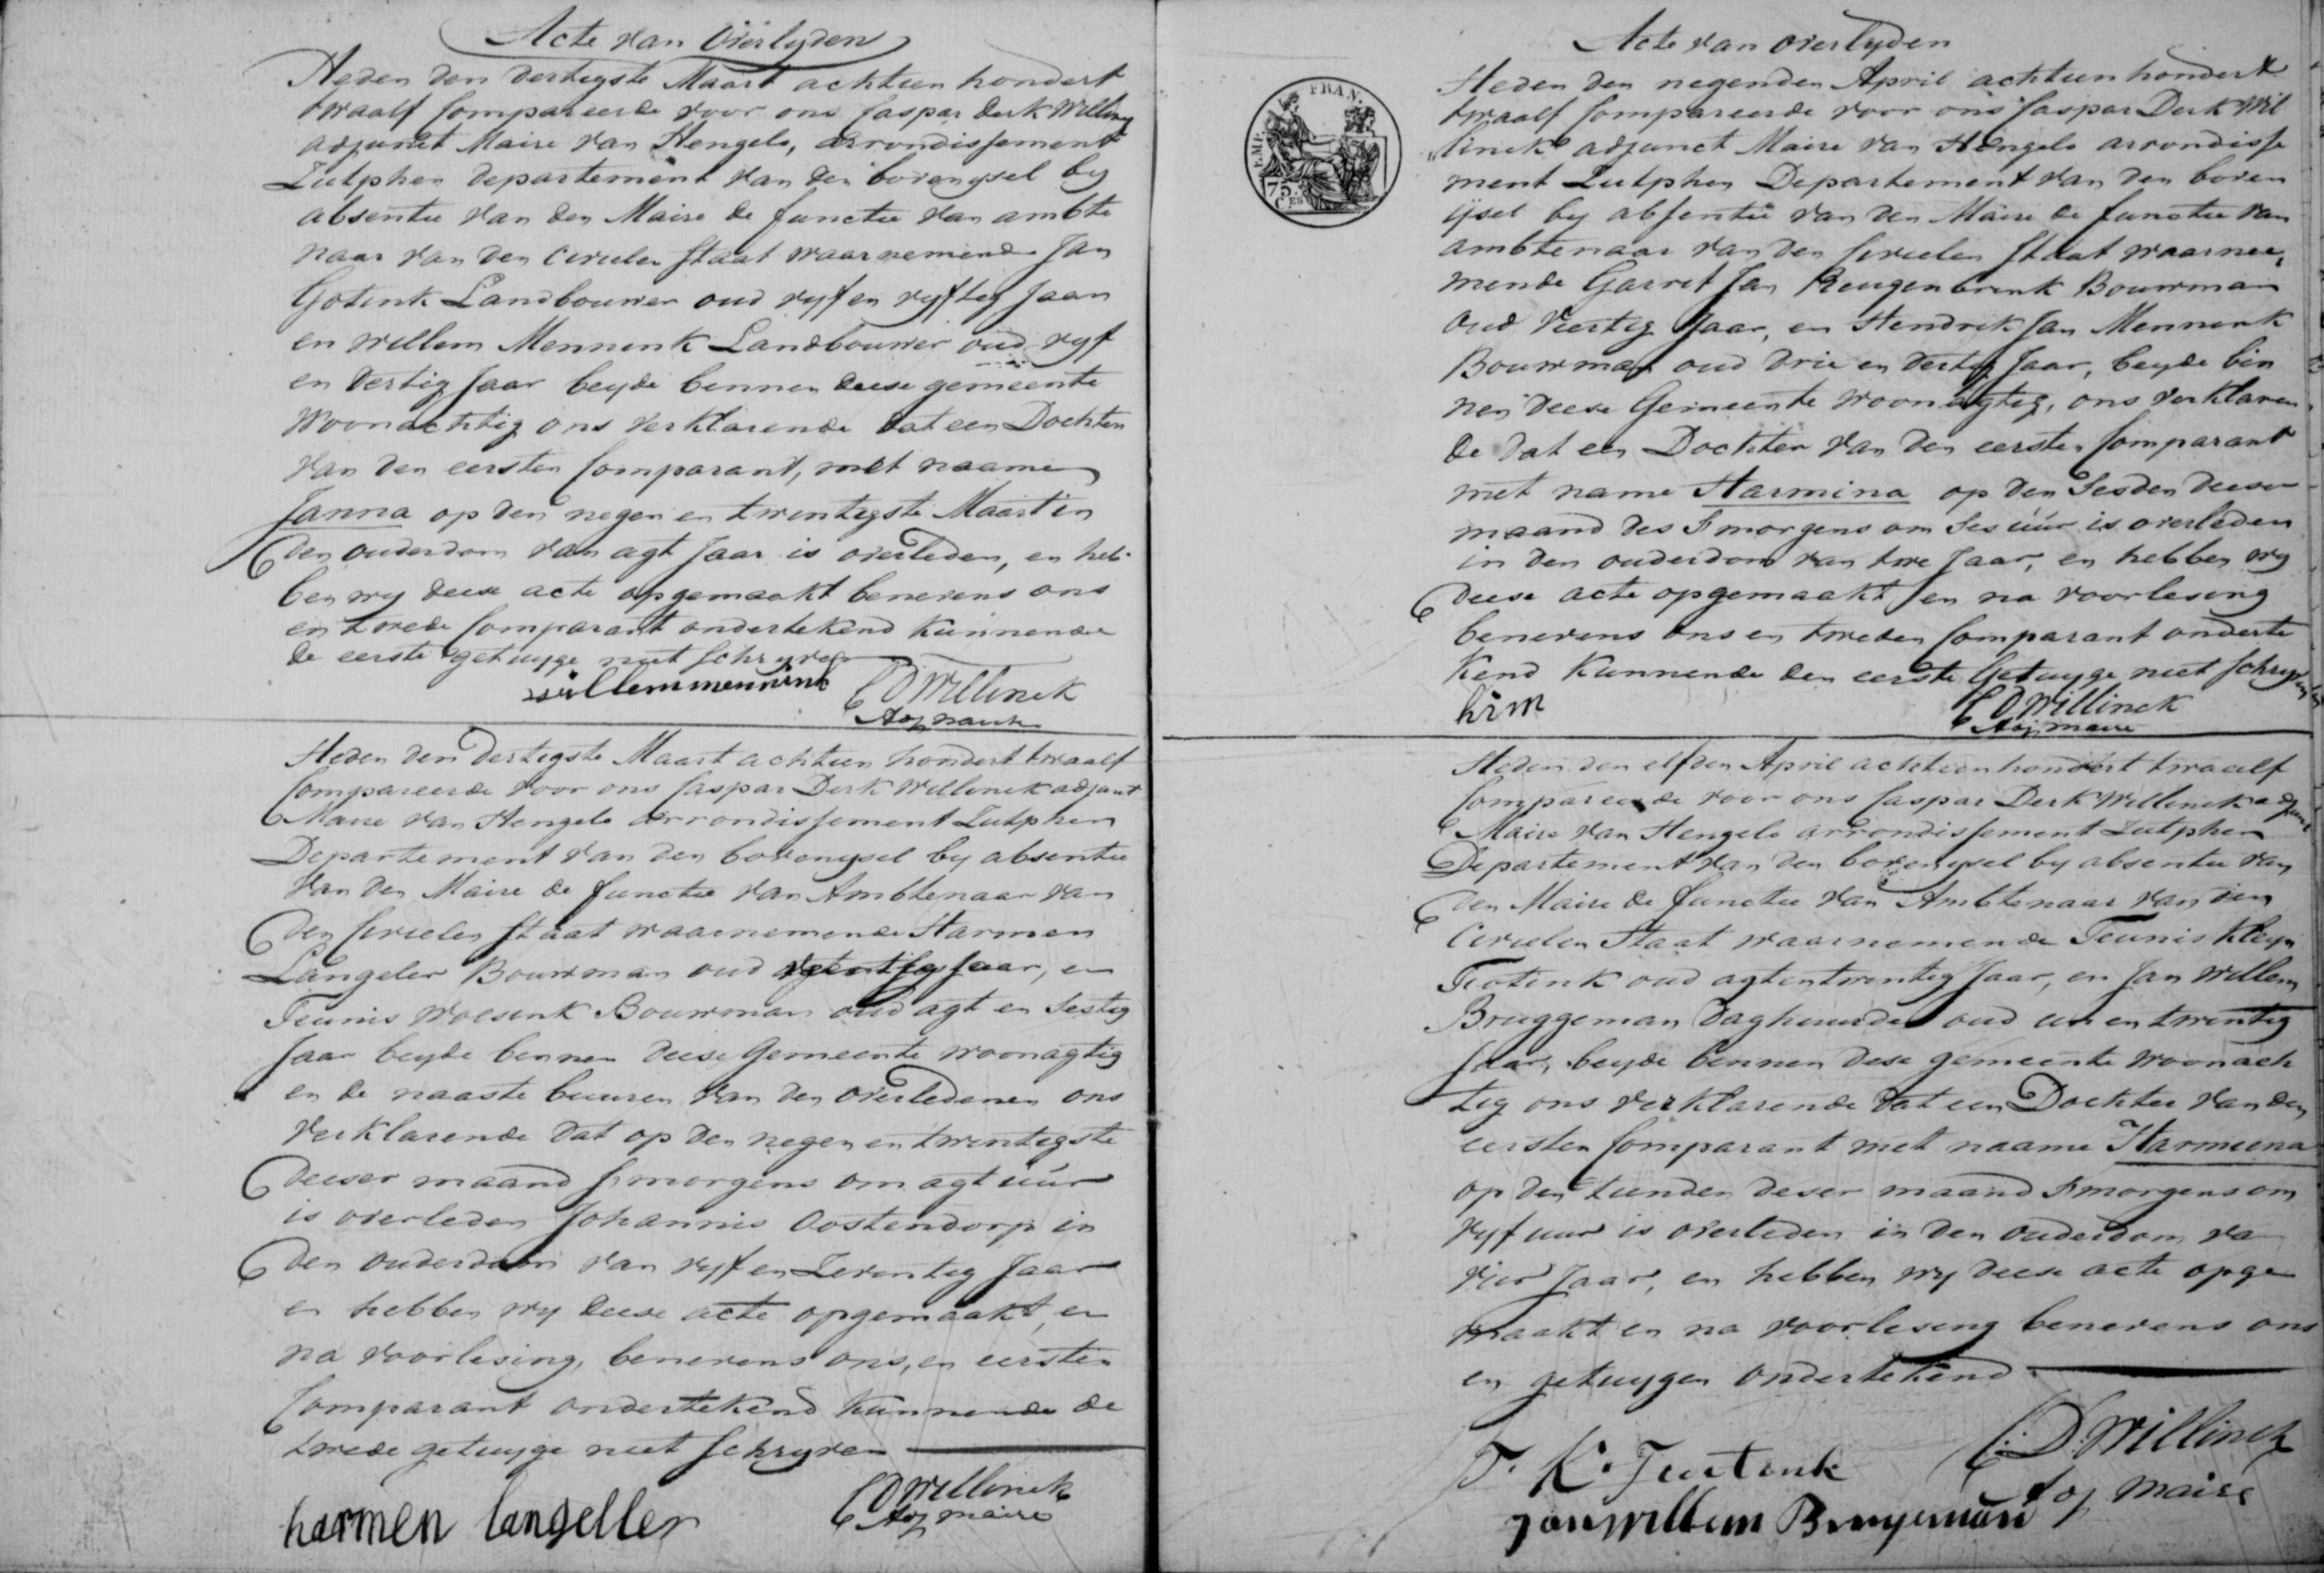 Acte van Overlyden
Heden den dertigste Maart achtien hondert
twaalf Compareerde voor ons Caspar Derk Willinck
adjunct Maire van Hengelo, arrondissement
Zutphen departement van den bovenysel by
absentie van den Maire de functie van ambte
naar van den Civielen Staat waarnemende Jan
Gotink Landbouwer oud vyf en vyftig Jaar
en Willem Mennink Landbouwer oud vyf
en dertig Jaar beyde binnen deese gemeente
Woonachtig ons verklarende dat een Dochter
van den eersten Comparant, met naame
Janna op den negen en twintigste Maart in
den ouderdom van agt Jaar is overleden, en heb
ben wy deese acte opgemaakt benevens ons
en twede Comparant ondertekend kunnende
de eerste getuyge niet schryven
willem mennink CD Willinck
Adj maire
Heden den dertigste Maart achtien hondert twaalf
Compareerde voor ons Caspar Derk Willinck adjunt
Maire van Hengelo arrondissement Zutphen
Departement van den bovenysel by absentie
van den Maire de functie van Ambtenaar van
den Civielen Staat waarnemende Harmen
Langeler Bouwman oud Jaar, en
Teunis Woesink Bouwman oud agt en Sestig
Jaar beyde binnen deese Gemeente woonagtig
en de naaste buuren van den overledenen ons
verklarende dat op den negen en twintigste
deeser maand smorgens om agt uur
is overleden Johannis Oostendorp in
den ouderdom van vyf en Zeventig Jaar
en hebben wy deese acte opgemaakt, en
na voorlesing, benevens ons, en eersten
Comparant ondertekend kunnende de
twede getuyge niet schryven
harmen langeller CD Willinck
Adj maire
Acte van overlyden
EMP. FRAN.
75 CES
Heden den negenden April achtien hondert
twaalf Compareerde voor ons Caspar Derk Wil
linck adjunct Maire van Hengelo arrondisse
ment Zutphen Departement van den boven
ijsel by absentie van den Maire de functie van
ambtenaar van den Civielen Staat waarnee,
mende Garret Jan Reugenbrink Bouwman
Oud Veertig Jaar, en Hendrik Jan Mennink
Bouwman oud drie en dertig Jaar, beyde bin
nen deese Gemeente woonagtig, ons verklaren
de dat een Dochter van den eersten Comparant
met name Harmina op den Sesden deeser
maand des Smorgens om Ses uur is overleden
in den ouderdom van twe Jaar, en hebben wy
deese acte opgemaakt en na voorlesing
benevens ons en tweden Comparant onderte
kend kunnende den eerste Getuyge niet schryven
him CD Willinck
Adj. maire
Heden den elfden April achtien hondert twaalf
Compareerde voor ons Caspar Derk Willinck adjunt
Maire van Hengelo arrondissement Zutphen
Departement van den bovenysel by absentie van
den Maire de functie van Ambtenaar van den
Civielen Staat waarnemende Teunis Kleyn
Tiotink oud agtentwintig Jaar, en Jan Willem
Bruggeman Daghuurder oud een en twintig
Jaar, beyde binnen dese gemeente woonach
tig ons verklarende dat een Dochter van den
eersten Comparant met naame Harmeena
op den tienden deser maand smorgens om
vyf uur is overleden in den ouderdom va
vier Jaar, en hebben wy deese acte opge
maakt en na voorlesing benevens ons
en getuygen ondertekend
T. K. Tiotink C: D: Willinck
Jan Willem Bruggeman Adj maire